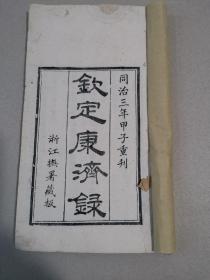 同治三年甲子重刊
欽定康濟錄
浙江撫署藏板